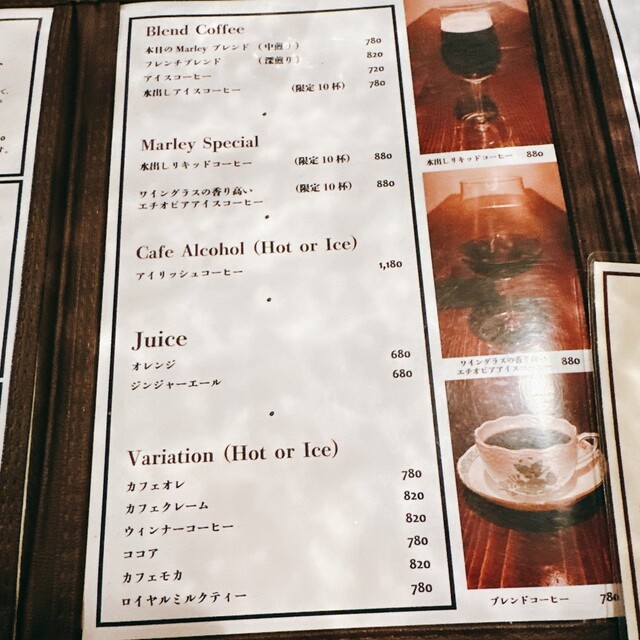 Blend Coffee
本日のMarley ブレンド (中煎り) 780
フレンチブレンド (深煎り) 820
アイスコーヒー 720
水出しアイスコーヒー (限定10杯) 780
Marley Special
水出しリキッドコーヒー (限定10杯) 880
ワイングラスの香り高い (限定10杯) 880
エチオピアアイスコーヒー
Cafe Alcohol (Hot or Ice)
アイリッシュコーヒー 1,180
Juice
オレンジ 680
ジンジャーエール 680
Variation (Hot or Ice)
カフェオレ 780
カフェクレーム 820
ウィンナーコーヒー 820
ココア 780
カフェモカ 820
ロイヤルミルクティー 780
水出しリキッドコーヒー 880
ワイングラスの香り高い 880
エチオピアアイスコーヒー
ブレンドコーヒー 780